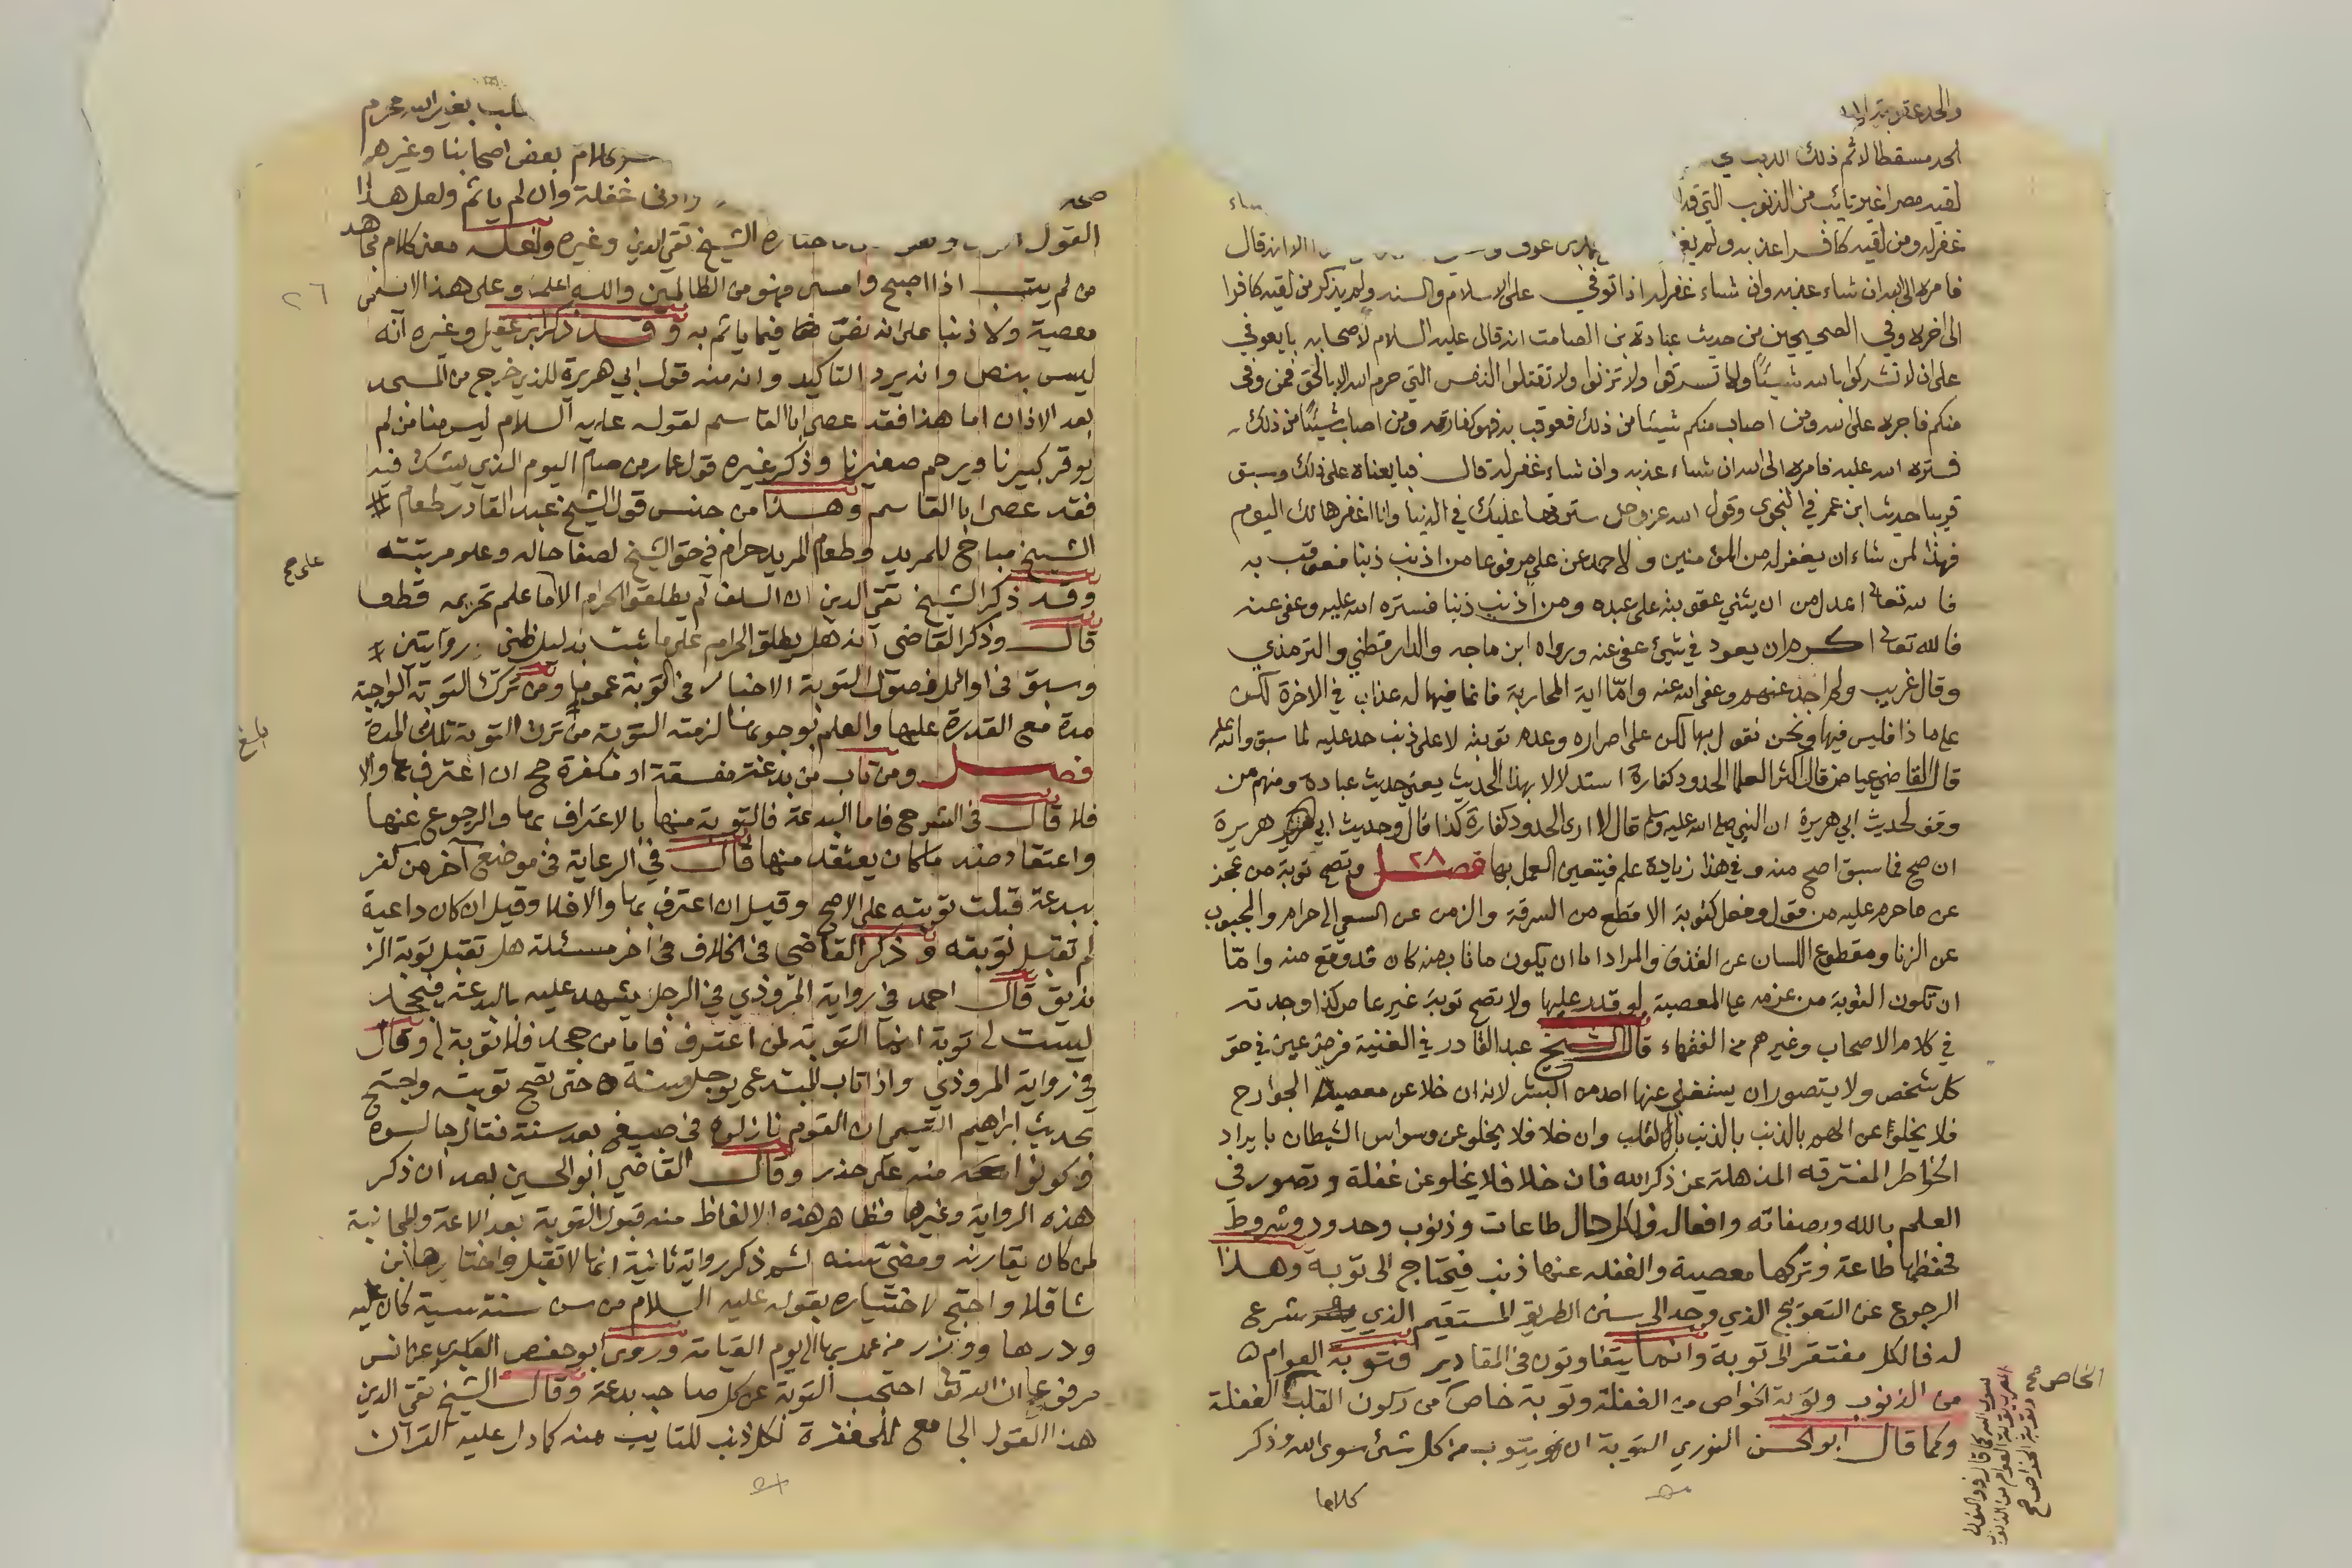 والحد عقوبة
الحد مسقطا لاثم ذلك الذنب
لقيه مصرا غير تائب من الذنوب التي قد
غفر له ومن لقيه كافرا عذبه ولم يغفر الا انه قال
فامره الى الله ان شاء عذبه وان شاء غفر له اذا توفي على الاسلام والسنه ولم يذكر من لقيه كافرا
الى اخره وفي الصحيحين من حديث عبادة بن الصامت انه قال عليه السلام لاصحابه بايعوني
على ان لا تشركوا بالله شيئاً ولا تسرقوا ولا تزنوا ولا تقتلوا النفس التي حرم الله الا بالحق فمن وفى
منكم فاجره على الله ومن اصاب منكم شيئا من ذلك فعوقب به فهو كفارته ومن اصاب شيئاً من ذلك
فستره الله عليه فامره الى الله ان شاء عذبه وان شاء غفر له قال فبايعناه على ذلك وسبق
قريبا حديث ابن عمر في النجوى وقول الله عز وجل سترتها عليك في الدنيا وانا اغفرها لك اليوم
فهذا لمن شاء ان يغفر له من المؤمنين ولاحمد عن علي مرفوعا من اذنب ذنبا فعوقب به
فالله تعالى اعدل من ان يثني عقوبته على عبده ومن اذنب ذنبا فستره الله عليه وعفى عنه
فالله تعالى اكرم من ان يعود في شيئ عفى عنه ورواه ابن ماجه والدارقطني والترمذي
وقال غريب وعفى الله عنه وامّا اية المحاربة فانما فيها له عذاب في الاخرة لكن
على ماذا فليس فيها ونحن نقول بها لكن على اصراره وعدم توبته لا على ذنب حد عليه لما سبق والله اعلم
قال القاضي عياض قال اكثر العلما الحدود كفارة استدلالا بهذا الحديث يعني حديث عبادة ومنهم من
وقف لحديث ابي هريرة ان النبي صلى الله عليه وسلم قال لا ادري الحدود كفارة كذا قال وحديث ابي هريرة
ان صح فما سبق اصح منه وفي هذا زيادة علم فيتعين العمل بها فصل ٢٨ وتصح توبة من عجز
عن ما حرم عليه من قول وفعل كتوبة الاقطع من السرقة والزمن عن السعي الى حرام والمجبوب
عن الزنا ومقطوع اللسان عن القذف والمراد اما ان يكون ما تاب منه كان قد وقع منه وامّا
ان تكون التوبة من عزمه على المعصية لو قدر عليها ولا تصح توبة غير عاص كذا وجدته
في كلام الاصحاب وغيرهم من الفقهاء قال الشيخ عبد القادر في الغنية فرض عين في حق
كل شخص ولا يتصور ان يستغني عنها احد من البشر لانه ان خلا عن معصية الجوارح
فلا يخلو عن الهم بالذنب بالقلب وان خلا فلا يخلو عن وسواس الشيطان بايراد
الخواطر المفترقه المذهلة عن ذكر الله فان خلا فلا يخلو عن غفلة وتصور في
العلم بالله وبصفاته وافعاله ولكل حال طاعات وذنوب وحدود وشروط
فحفظها طاعة وتركها معصية والغفله عنها ذنب فيحتاج الى توبة وهذا
الرجوع عن التعويج الذي وجد الى سنن الطريق المستقيم الذي شرع
له فالكل مفتقر الى توبة وانما يتفاوتون في المقادير فتوبة العوام
من الذنوب وتوبة الخواص من الغفلة وتوبة خاص من ركون القلب الغفلة
وكما قال ابو الحسن النوري التوبة ان يتوب من كل شئ سوى الله وذكر
كلاما
الخاص صح
بغير الله محرم
كلام بعض اصحابنا وغيرهم
غفلة وان لم ياثم ولعل هذا
القول الشيخ تقي الدين وغيره ولعله معنى كلام مجاهد
من لم يتب اذا اصبح وامسى فهو من الظالمين والله اعلم وعلى هذا لا تسمى
معصية ولا ذنبا على انه نص فيما ياثم به وقد ذكر ابن عقيل وغيره انه
ليس بنص وانه يرد التاكيد وانه منه قول ابي هريرة للذي خرج من المسجد
بعد الاذان اما هذا فقد عصى ابا القاسم لقوله عليه السلام ليس منا من لم
يوقر كبيرنا ويرحم صغيرنا وذكر غيره قول عمار من صام اليوم الذي يشك فيه
فقد عصى ابا القاسم وهذا من جنس قول الشيخ عبد القادر طعام
الشيخ مباح للمريد وطعام المريد حرام في حق الشيخ لصفا حاله وعلو مرتبته
على صح
وقد ذكر الشيخ تقي الدين ان السلف لم يطلقوا الحرام الا ما علم تحريمه قطعا
قال وذكر القاضي انه هل يطلق الحرام على ما ثبت بدليل ظني روايتين
وسبق في اوائل فصول التوبة الاخبار في التوبة عموما ومن ترك التوبة الواجبة
مدة مع القدرة عليها والعلم بوجوبها لزمته التوبة من ترك التوبة تلك المدة
بلغ
فصل ومن تاب من بدعة مفسقة او مكفرة صح ان اعترف بها والا
فلا قال في الشرح فاما البدعة فالتوبة منها بالاعتراف بها والرجوع عنها
واعتقاد ضد ما كان يعتقد منها قال في الرعاية في موضع آخر من كفر
ببدعة قبلت توبته على الاصح وقيل ان اعترف بها والا فلا وقيل ان كان داعية
لم تقبل توبته وذكر القاضي في الخلاف في اخر مسئلة هل تقبل توبة الز
نديق قال احمد في رواية المروذي في الرجل يشهد عليه بالبدعة فيجحد
ليست له توبة انما التوبة لمن اعترف فاما من جحد فلا توبة له وقال
في رواية المروذي واذا تاب المبتدع يوجل سنة حتى تصح توبته واحتج
بحديث ابراهيم التيمي ان القوم نازلوه في صبيغ بعد سنة فقال جالسوه
وكونوا منه على حذر وقال القاضي ابو الحسين بعد ان ذكر
هذه الرواية وغيرها فظاهر هذه الالفاظ منه قبول التوبة بعد الاعة والمجانبة
لمن كان يقارنه ومضي سنه ثم ذكر رواية ثانية انها لا تقبل واختارها ابن
شاقلا واحتج لاختياره بقوله عليه السلام من سن سنة سيئة كان عليه
وزرها ووزر من عمل بها الى يوم القيامة وروى ابو حفص العكبري عن انس
مرفوعا ان الله تعالى احتجب التوبة عن كل صاحب بدعة وقال الشيخ تقي الدين
هذا القول الجامع للمغفرة لكل ذنب للتايب منه كما دل عليه القرآن
٢٦